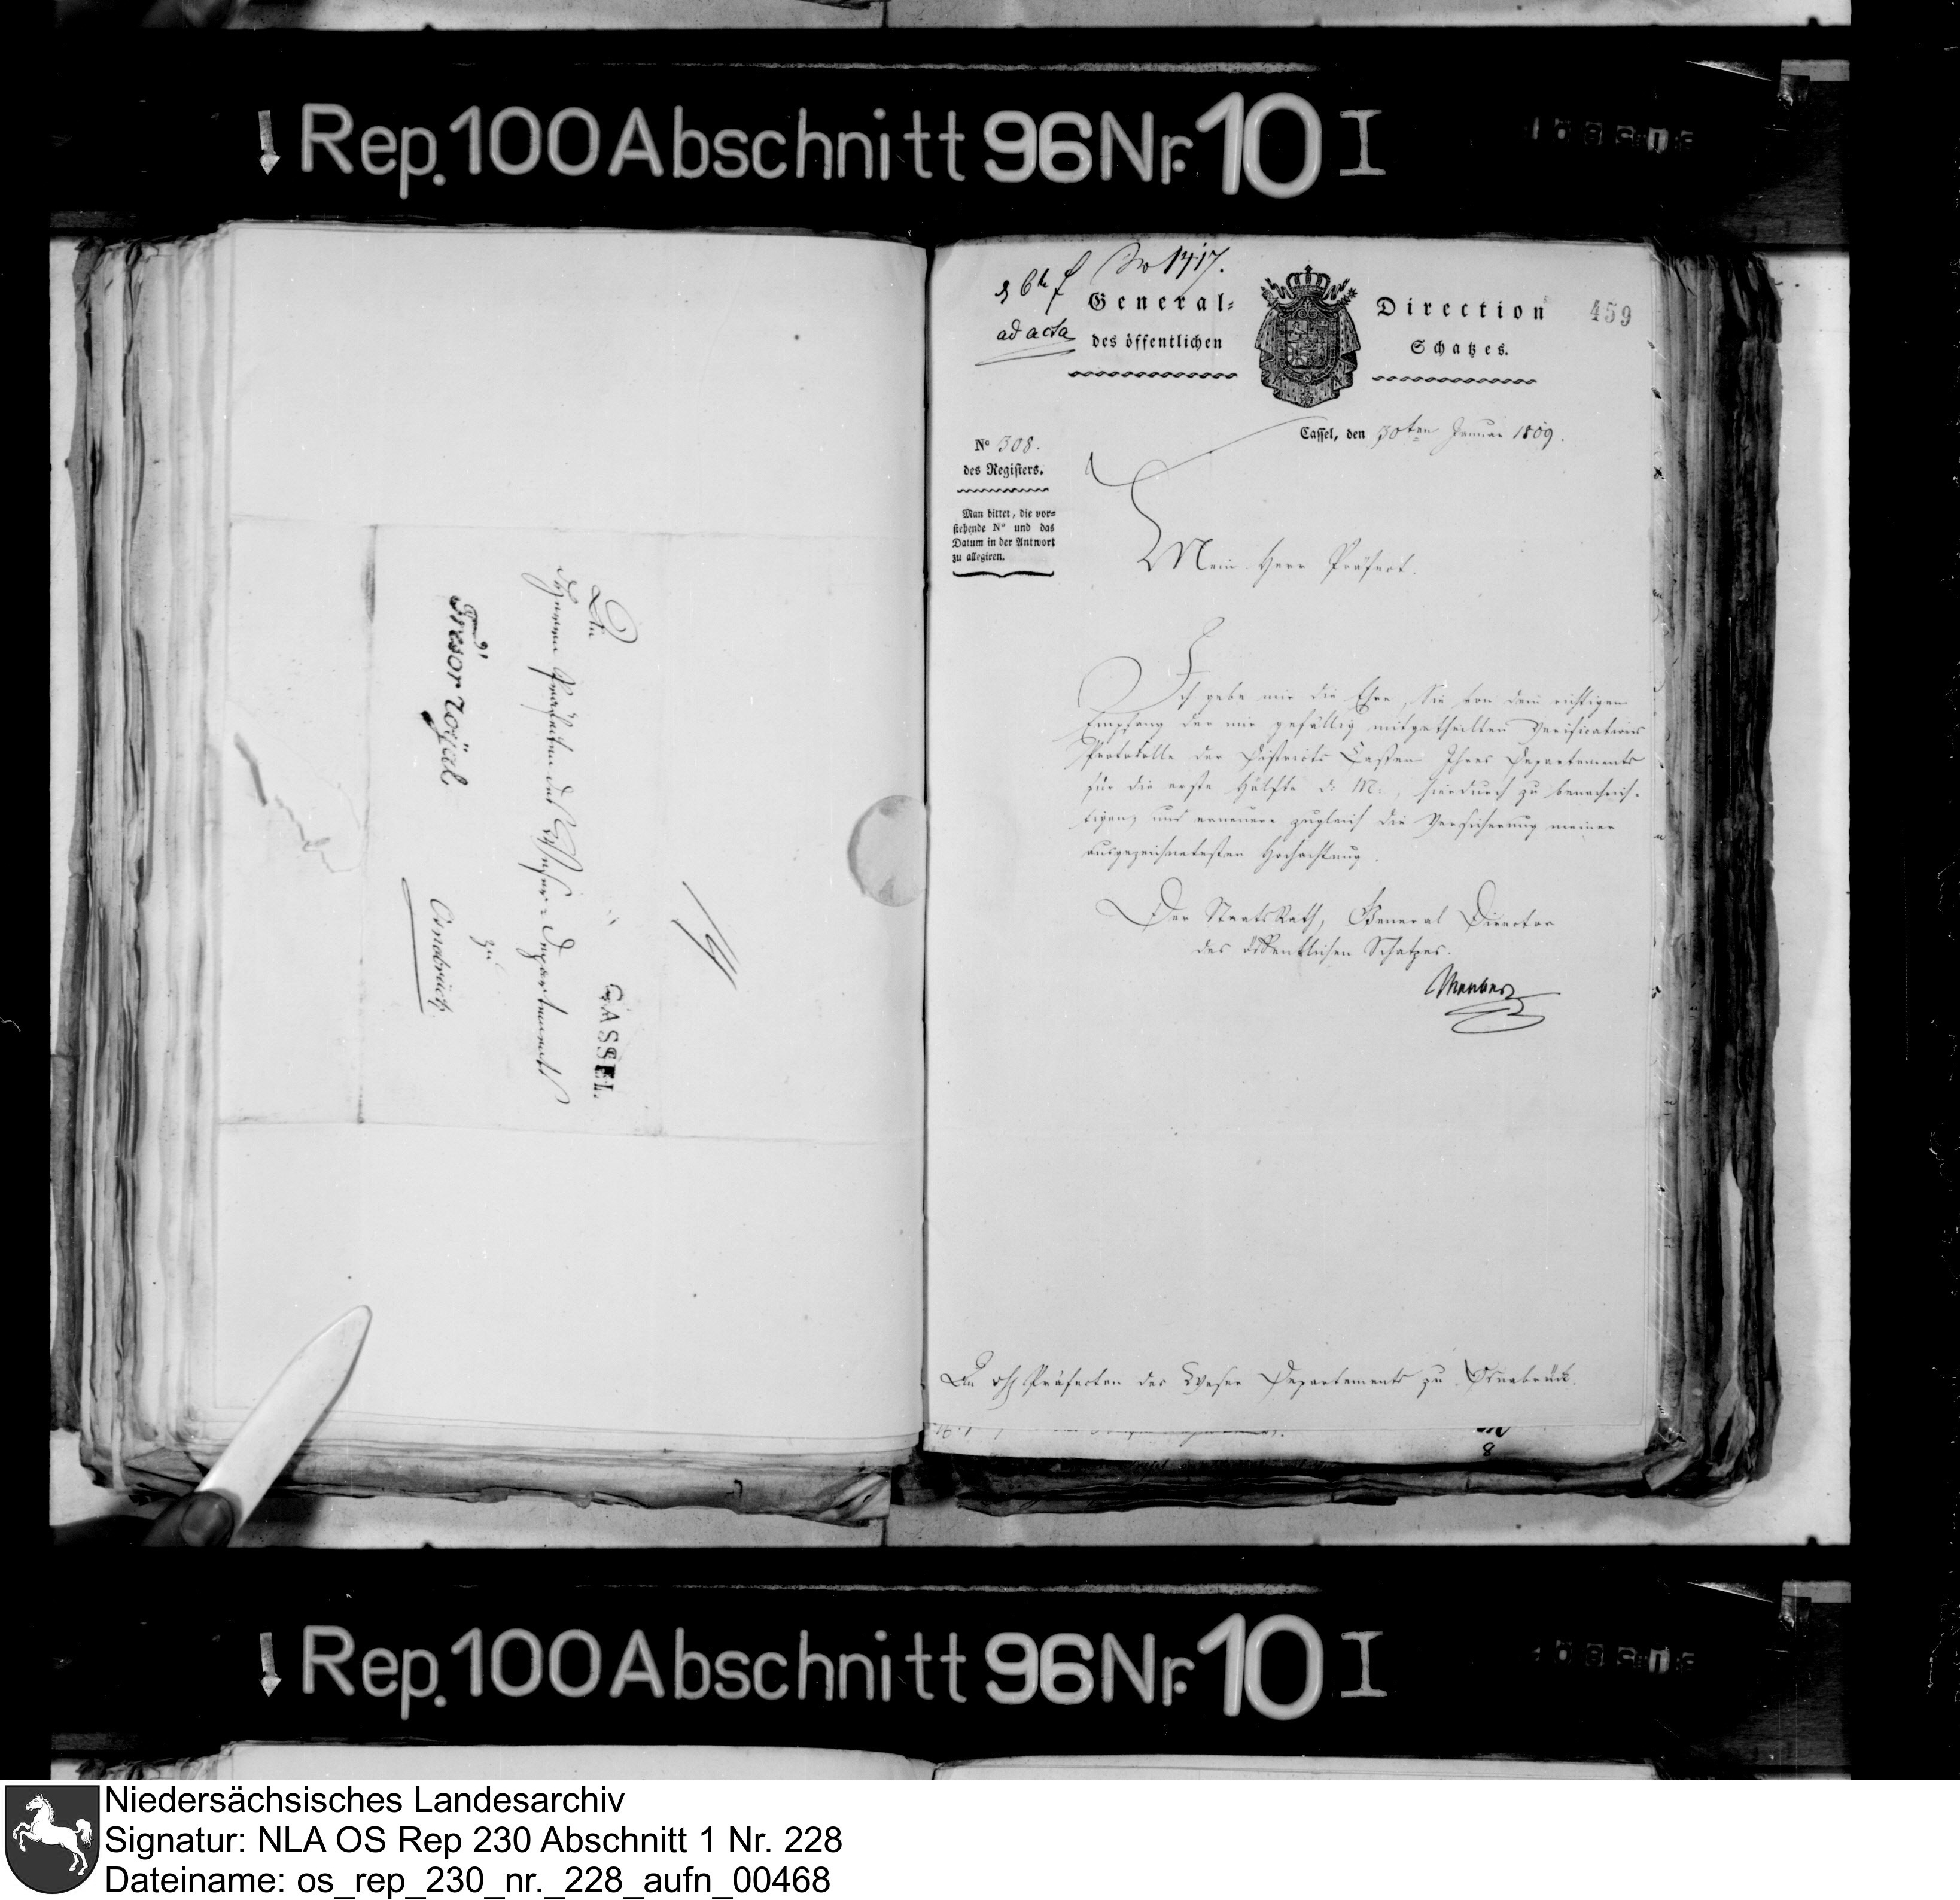 Rep. 100 Abschnitt 96 Nr. 10 I
An
Herrn Präfecten des Weser-Departements
zu
Trésor royal
Osnabrück
CASSEL.
No 1417.
ad acta
459
General- Direction
des öffentlichen Schatzes.
Cassel, den 30ten Januar 1809.
No 308.
des Registers.
Man bittet, die vor-
stehende No und das
Datum in der Antwort
zu allegiren.
Mein Herr Präfect.
Ich gebe mir die Ehre, Sie von dem richtigen
Empfang der mir gefällig mitgetheilten Verifications
Protokolle der Districts Cassen Ihres Departements
für die erste Hälfte d. M., hierdurch zu benachrich-
tigen, und erneuere zugleich die Versicherung meiner
ausgezeichnetesten Hochachtung.
Der StaatsRath, General Director
des öffentlichen Schatzes.
An Präfecten des Weser Departements zu Osnabrück.
8
Rep. 100 Abschnitt 96 Nr. 10 I
Niedersächsisches Landesarchiv
Signatur: NLA OS Rep 230 Abschnitt 1 Nr. 228
Dateiname: os_rep_230_nr._228_aufn_00468